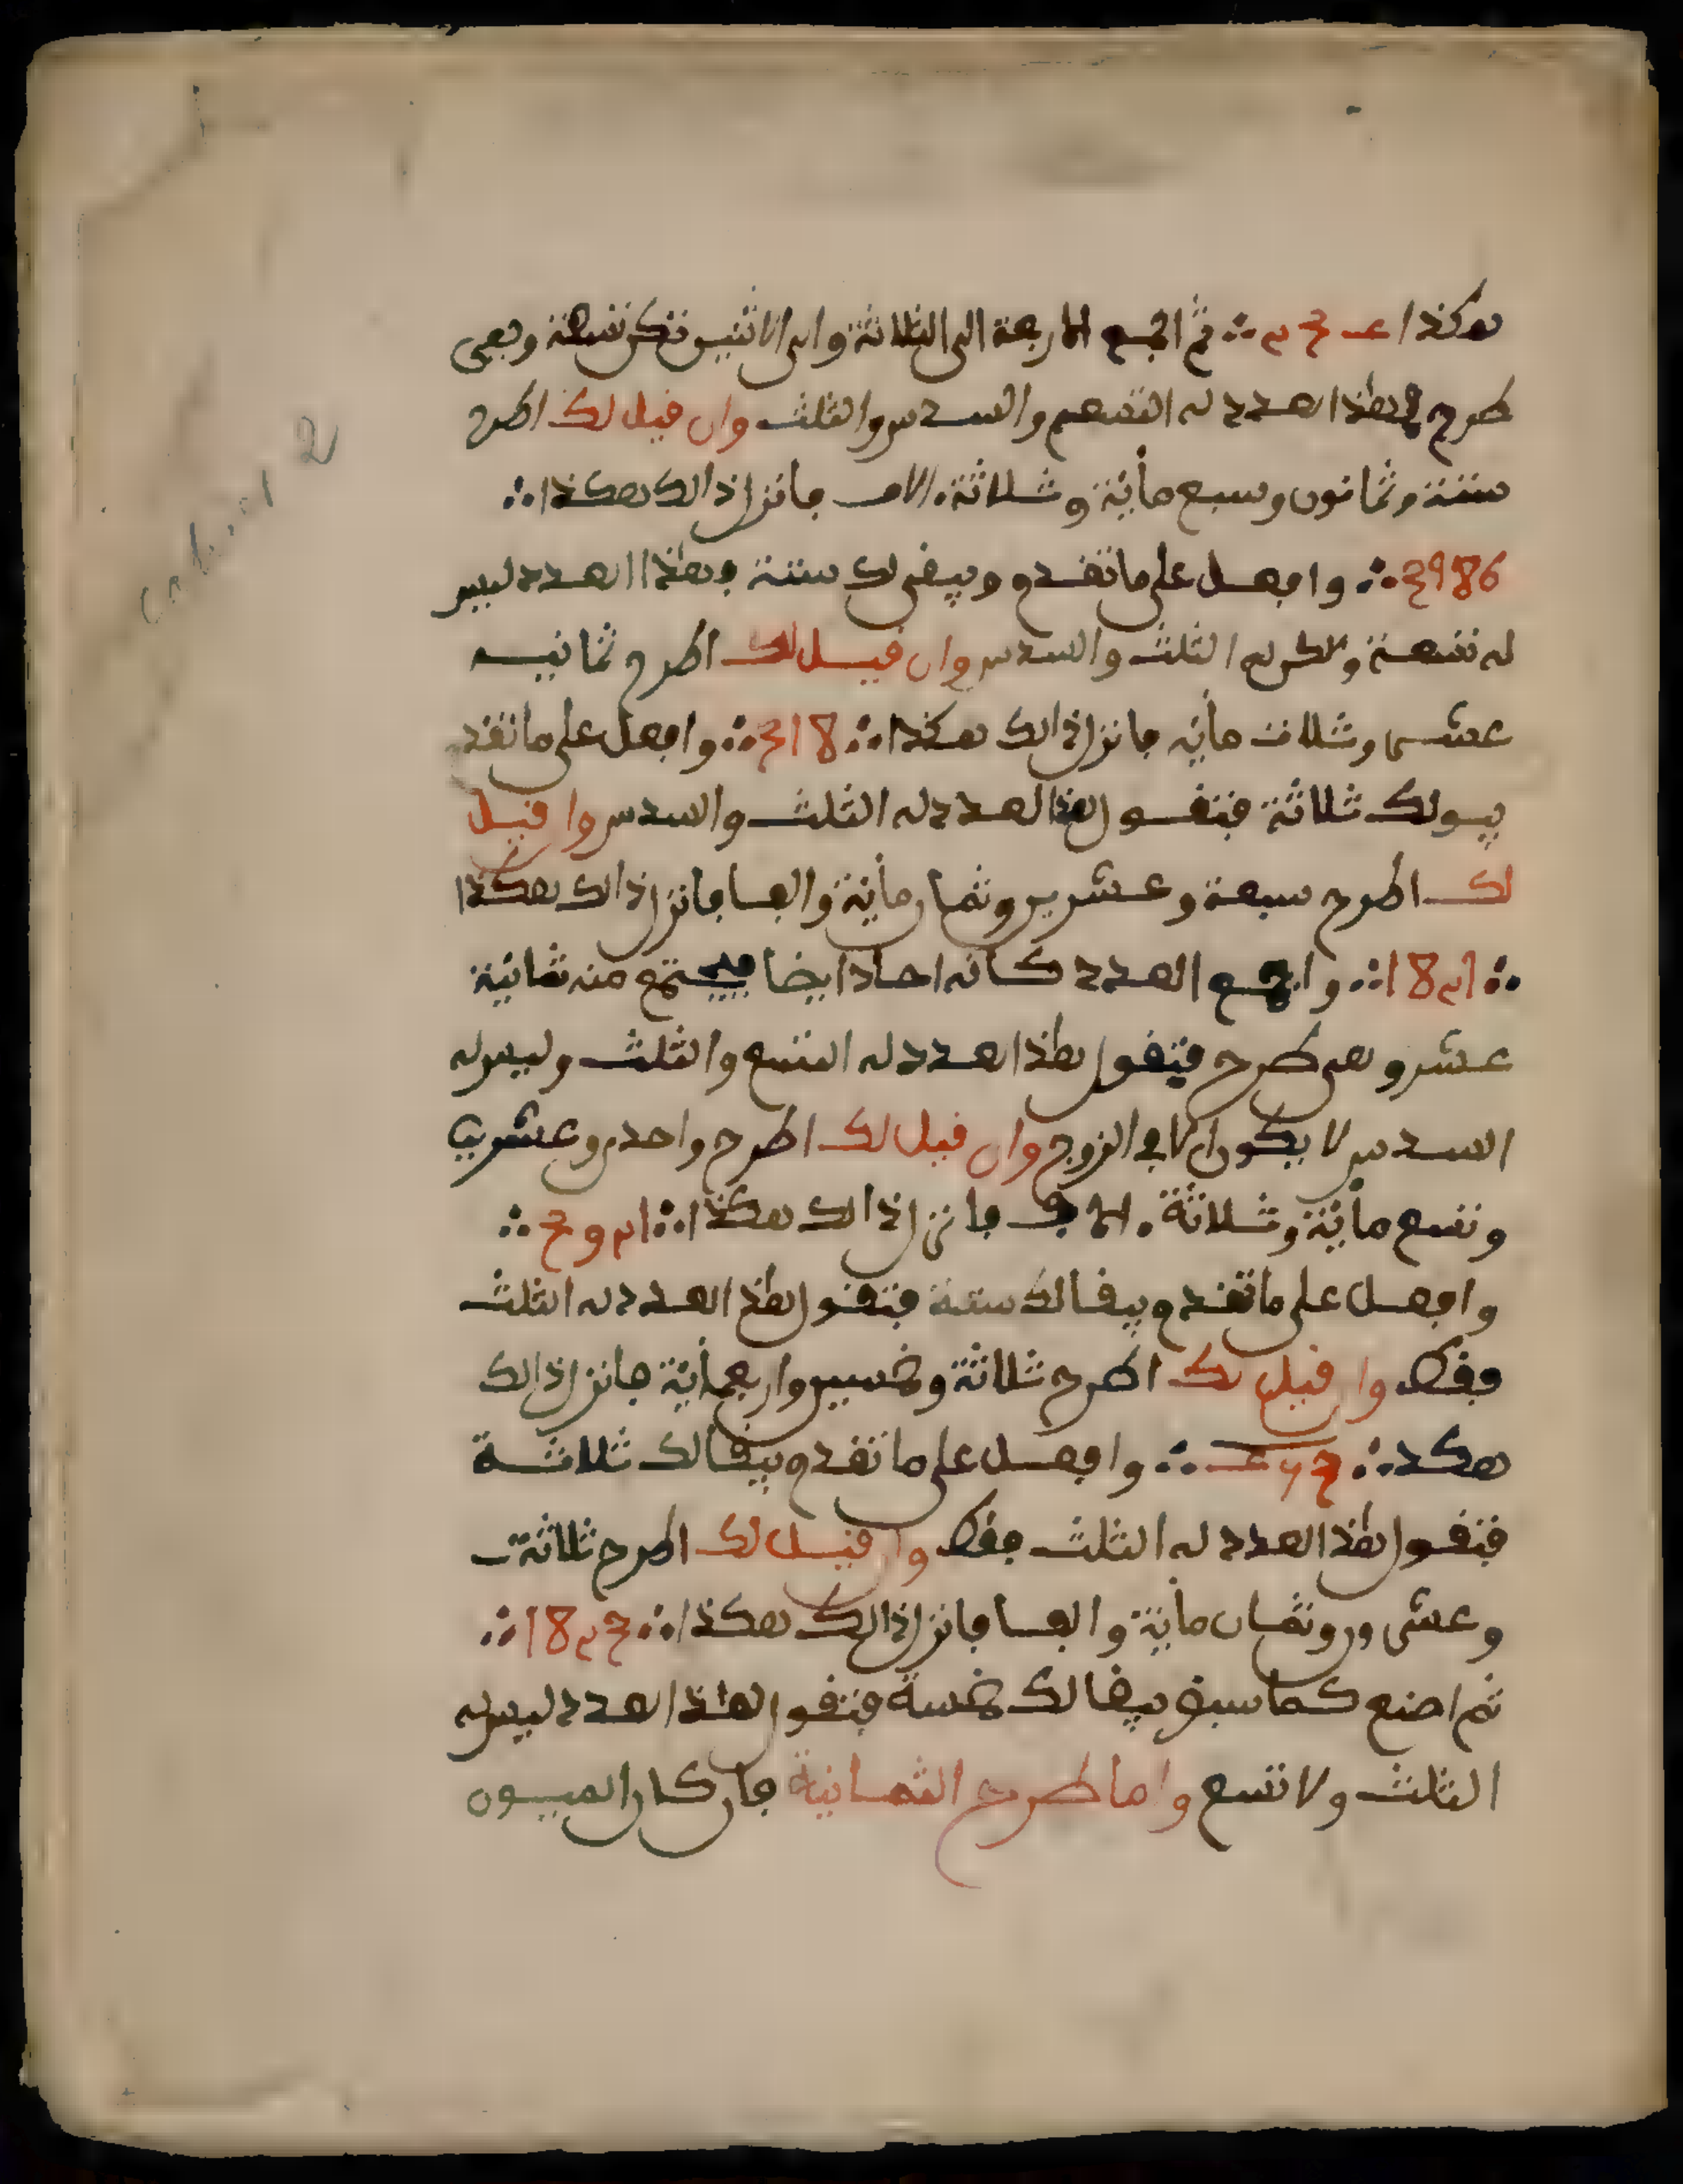 هكذا عـ ح ٢ ∴ ثم اجمع الاربعة الى الثلاثة والى الاثنين تكن تسعة وهي
طرح فهذا العدد له التسع والسدس والثلث وان فيل لك اطرح
ستة وثمانون وسبع مأية وثلاثة ءالاف فانزل ذالك هكذا ∴
3986 ∴ وافعل على ما تفدم ويبفى لك ستة وهذا العدد ليس
له تسعة ولكن له الثلث والسدس وان فيل لك اطرح ثمانية
عشر وثلاث مأية فانزل ذالك هكذا ∴ 318 ∴ وافعل على ما تفدم
يبفو لك ثلاثة فتفول هذا العدد له الثلث والسدس وان فيل
لك اطرح سبعة وعشرين وثمان مأية والفا فانزل ذالك هكذا
∴ 18٢1 ∴ واجمع العدد كانه احاد ايضا فيجتمع منه ثمانية
عشر وهي طرح فتفول هذا العدد له التسع والثلث وليس له
السدس لا يكون الا في الزوج وان فيل لك اطرح واحد وعشرين
وتسع مأية وثلاثة ءالاف فانزل ذالك هكذا ∴ ا ٢ و ح ∴
وافعل على ما تفدم ويبفا لك ستة فتفول هذا العدد له الثلث
ففط وان فيل لك اطرح ثلاثة وخمسين واربعمأية فانزل ذالك
هكذ ∴ ح y عـ ∴ وافعل على ما تفدم ويبفا لك ثلاثة
فتفول هذا العدد له الثلث ففط وان فيل لك اطرح ثلاثة
وعشرون وثمان مأية والفا فانزل ذالك هكذا ∴ 18٢3 ∴
ثم اصنع كما سبق يبفا لك خمسة فتفول هذا العدد ليس له
الثلث ولا تسع واما طرح الثمانية فان كان الميسون
2